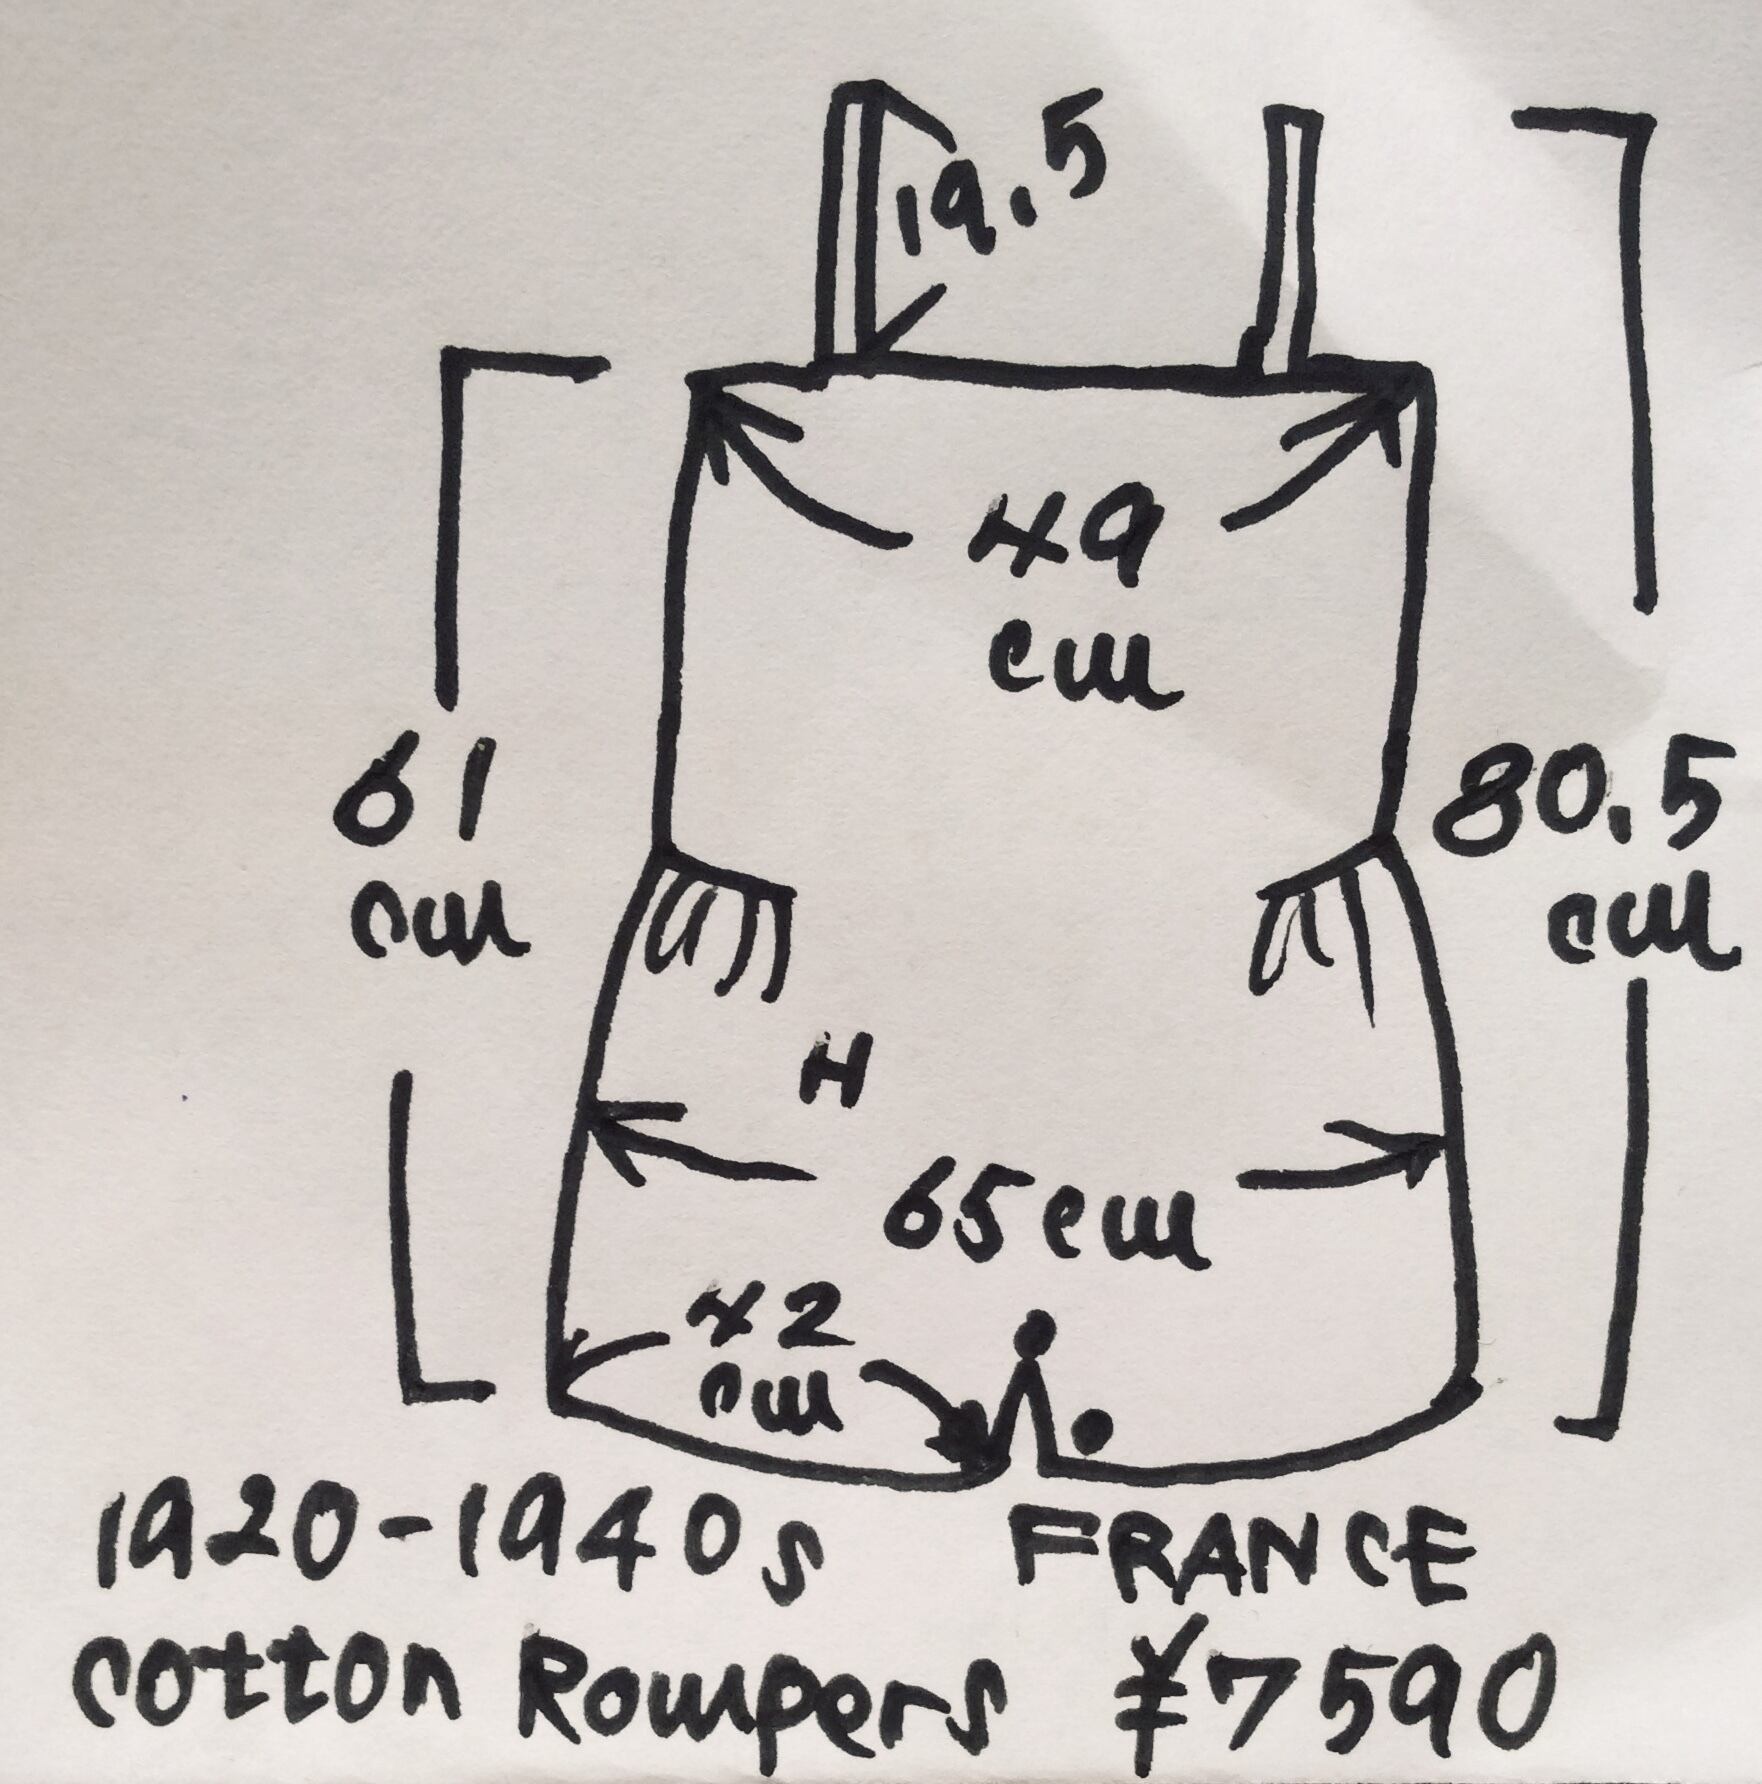 19.5
49
cm
61
cm
80.5
cm
H
65cm
42
cm
1920-1940s FRANCE
cotton Rompers ¥7590